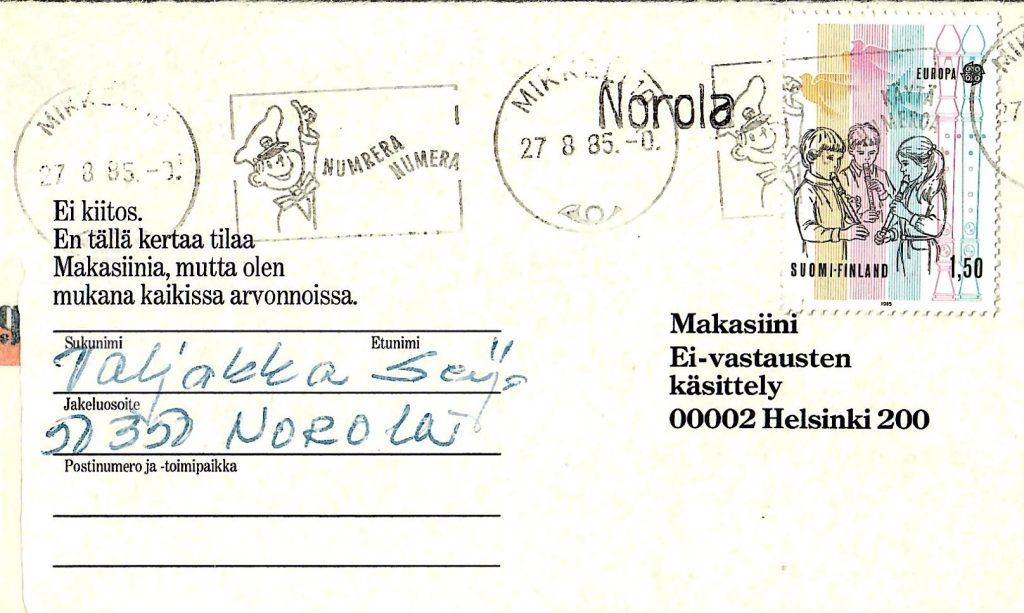 MIKKELI
27 8 85.-0.
NUMRERA
NUMERA
MIKKELI
27 8 85.-0.
Norola
EUROPA
KÄYTÄ
SUOMI-FINLAND
1,50
1985
27
Ei kiitos.
En tällä kertaa tilaa
Makasiinia, mutta olen
mukana kaikissa arvonnoissa.
9
Sukunimi Etunimi
Taljakka Seija
Jakeluosoite
50350 NOROLA
Postinumero ja -toimipaikka
Makasiini
Ei-vastausten
käsittely
00002 Helsinki 200